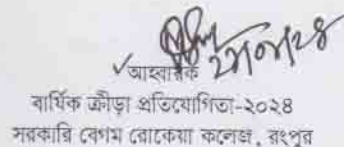 আহ্বায়ক
বার্ষিক ক্রীড়া প্রতিযোগিতা-২০২৪
সরকারি বেগম রোকেয়া কলেজ, রংপুর